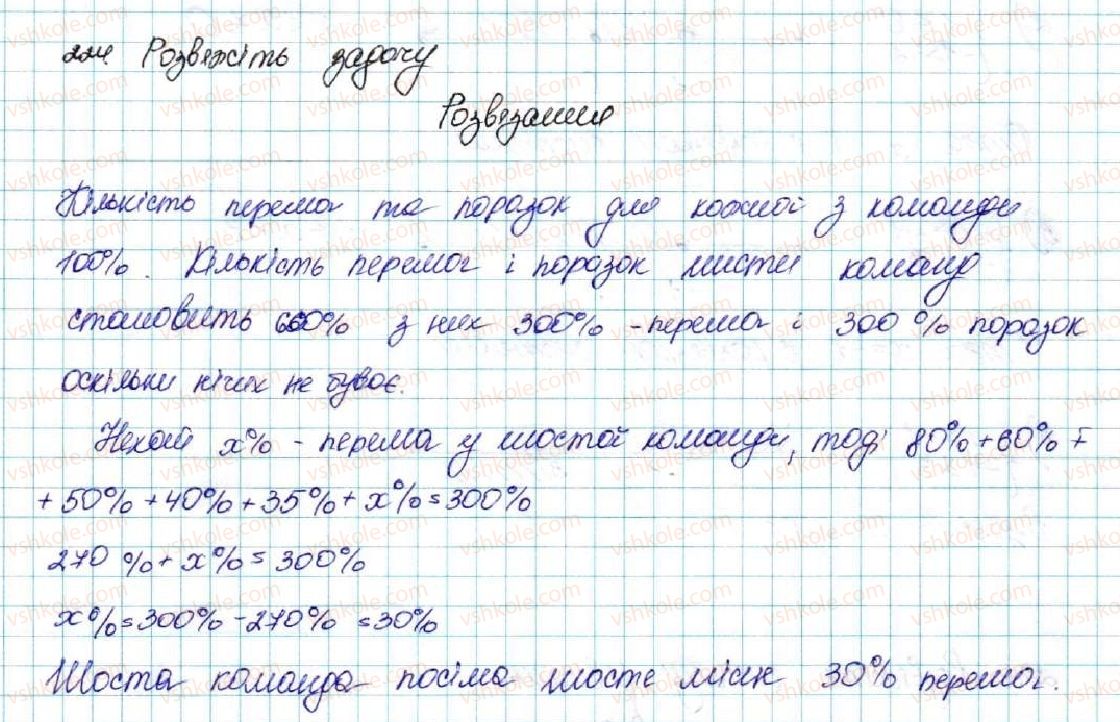 224 Розвяжіть задачу
Розвязання
Кількість перемог та поразок для кожної з команди
100%. Кількість перемог і поразок шістьи команд
становить 600% з них 300% - перемог і 300% поразок
оскільки нічих не буває.
Нехай x% - перемог у шостой команди, тоді 80% + 60% +
+ 50% + 40% + 35% + x% = 300%
270 % + x% = 300%
x% = 300% - 270% = 30%
Шоста команда посіла шосте місце 30% перемог.